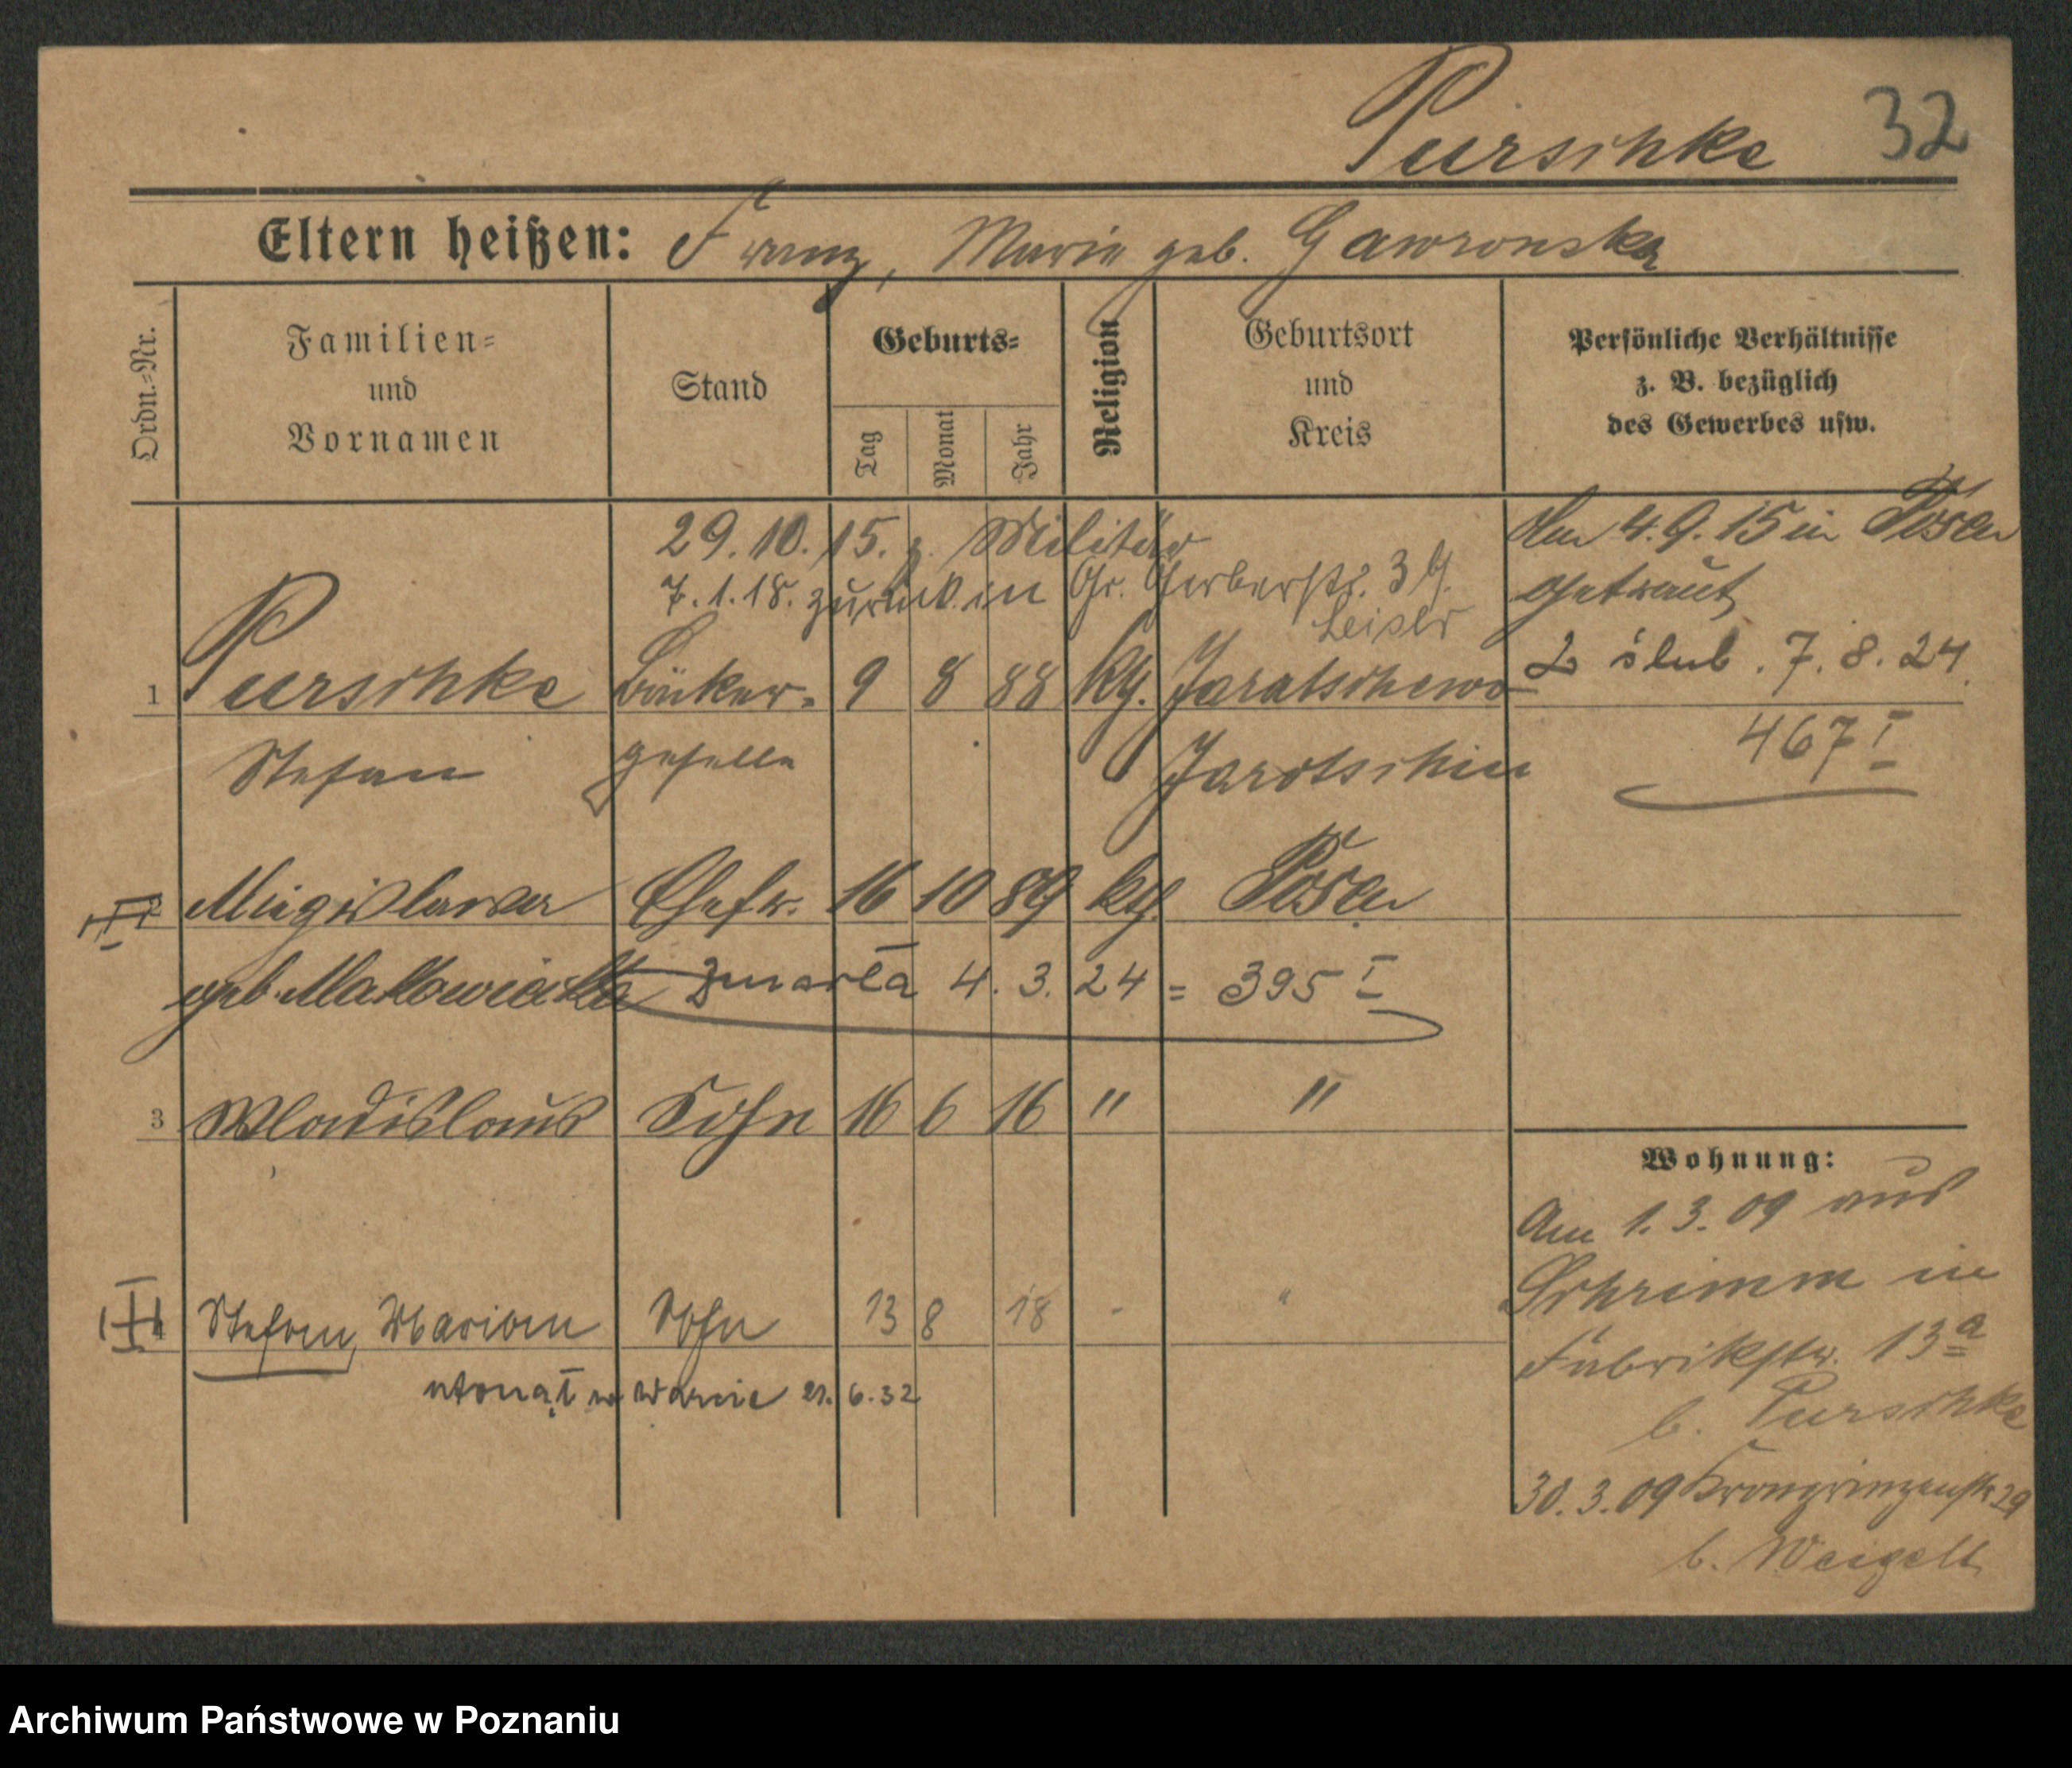 Purschke 32
Eltern heißen: Franz, Marie geb. Gawronska
Ordn.-Nr.
Familien=
und
Vornamen
Stand
Geburts=
Tag
Monat
Jahr
Religion
Geburtsort
und
Kreis
Persönliche Verhältnisse
z. B. bezüglich
des Gewerbes usw.
29.10.15. z. Militär
7.1.18. zurück in Gr. Gerberstr. 39.
Leiser
Am 4.9.15 in Posen
getraut
2 ślub. 7.8.24.
467 I
1 Purschke Bäcker= 9 8 88 kth. Jaratschewo
Stefan geselle Jarotschin
Miezislawa Ehefr. 16 10 89 kth. Posen
geb. zmarła 4.3.24 = 395 I
3 Wladislaus Sohn 16 6 16 " "
4 Stefan, Marian Sohn 13 8 18 " "
utonął w Warcie 21.6.32
Wohnung:
Am 1.3.09 aus
Schrimm in
Fabrikstr. 13a
b. Purschke
30.3.09 Kronprinzenstr. 29
b. Weigelt
Archiwum Państwowe w Poznaniu